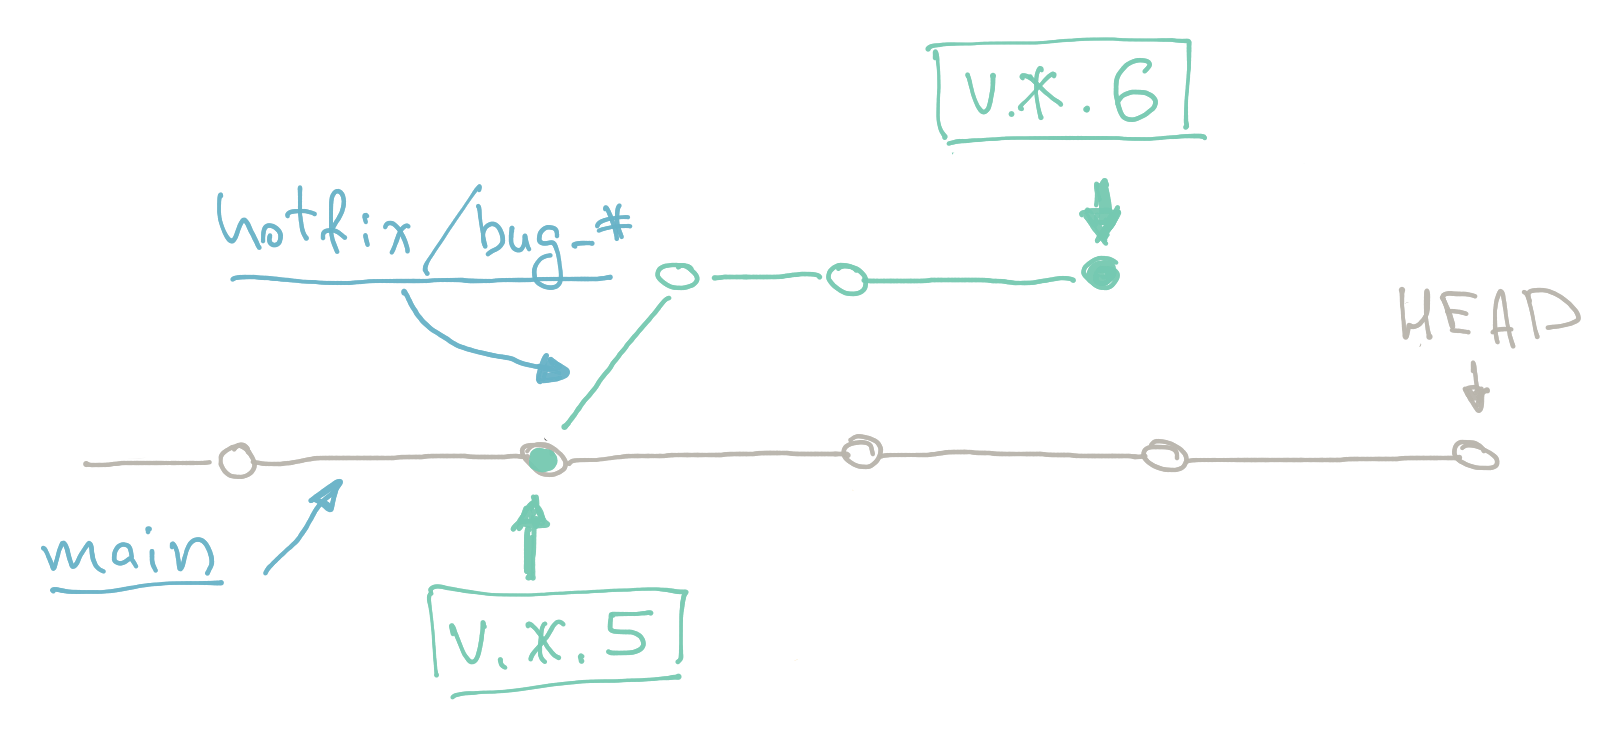 v.*.6
hotfix/bug_*
HEAD
main
v.*.5